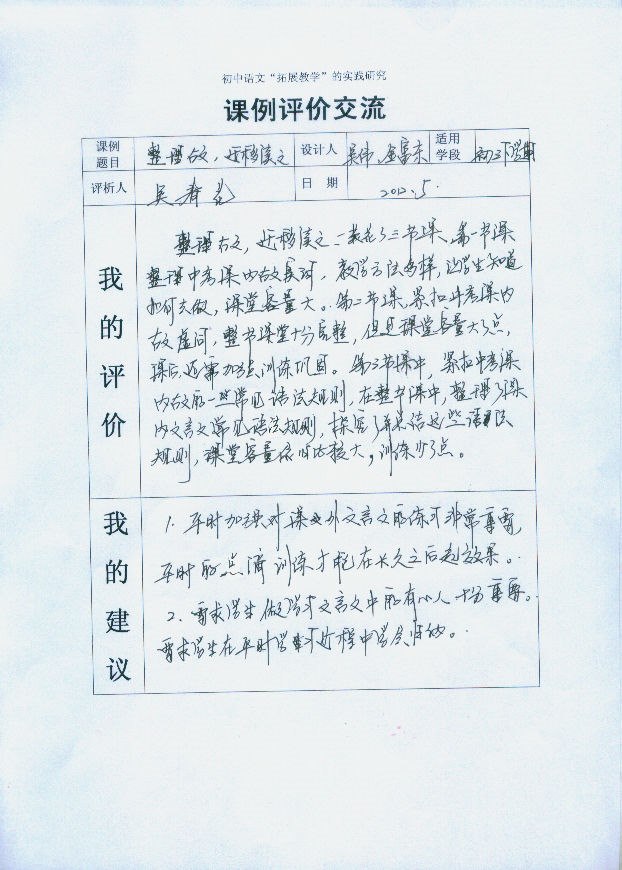 初中语文“拓展教学”的实践研究
课例评价交流
课例题目 整理古文，迁移读文 设计人 吴伟、金富东 适用学段 初三下学期
评析人 吴春花 日期 2012.5.
我的评价
整理古文，迁移读文一共花了三节课，第一节课
整理中考课内古文实词，教学方法多样，让学生知道
如何去做，课堂容量大。第二节课，紧扣中考课内
古文虚词，整节课堂十分完整，但是课堂容量大了点，
课后还需加强训练巩固。第三节课中，紧扣中考课
内古文的一些常见语法规则，在整节课中，整理了课
内文言文常见语法规则，探究了并总结这些语法
规则，课堂容量依旧比较大，训练少了点。
我的建议
1. 平时加强对课外文言文的练习非常重要，
平时的点滴训练才能在长久之后起效果。
2. 要求学生做学习文言文中的有心人十分重要。
要求学生在平时学习过程中学会归纳。